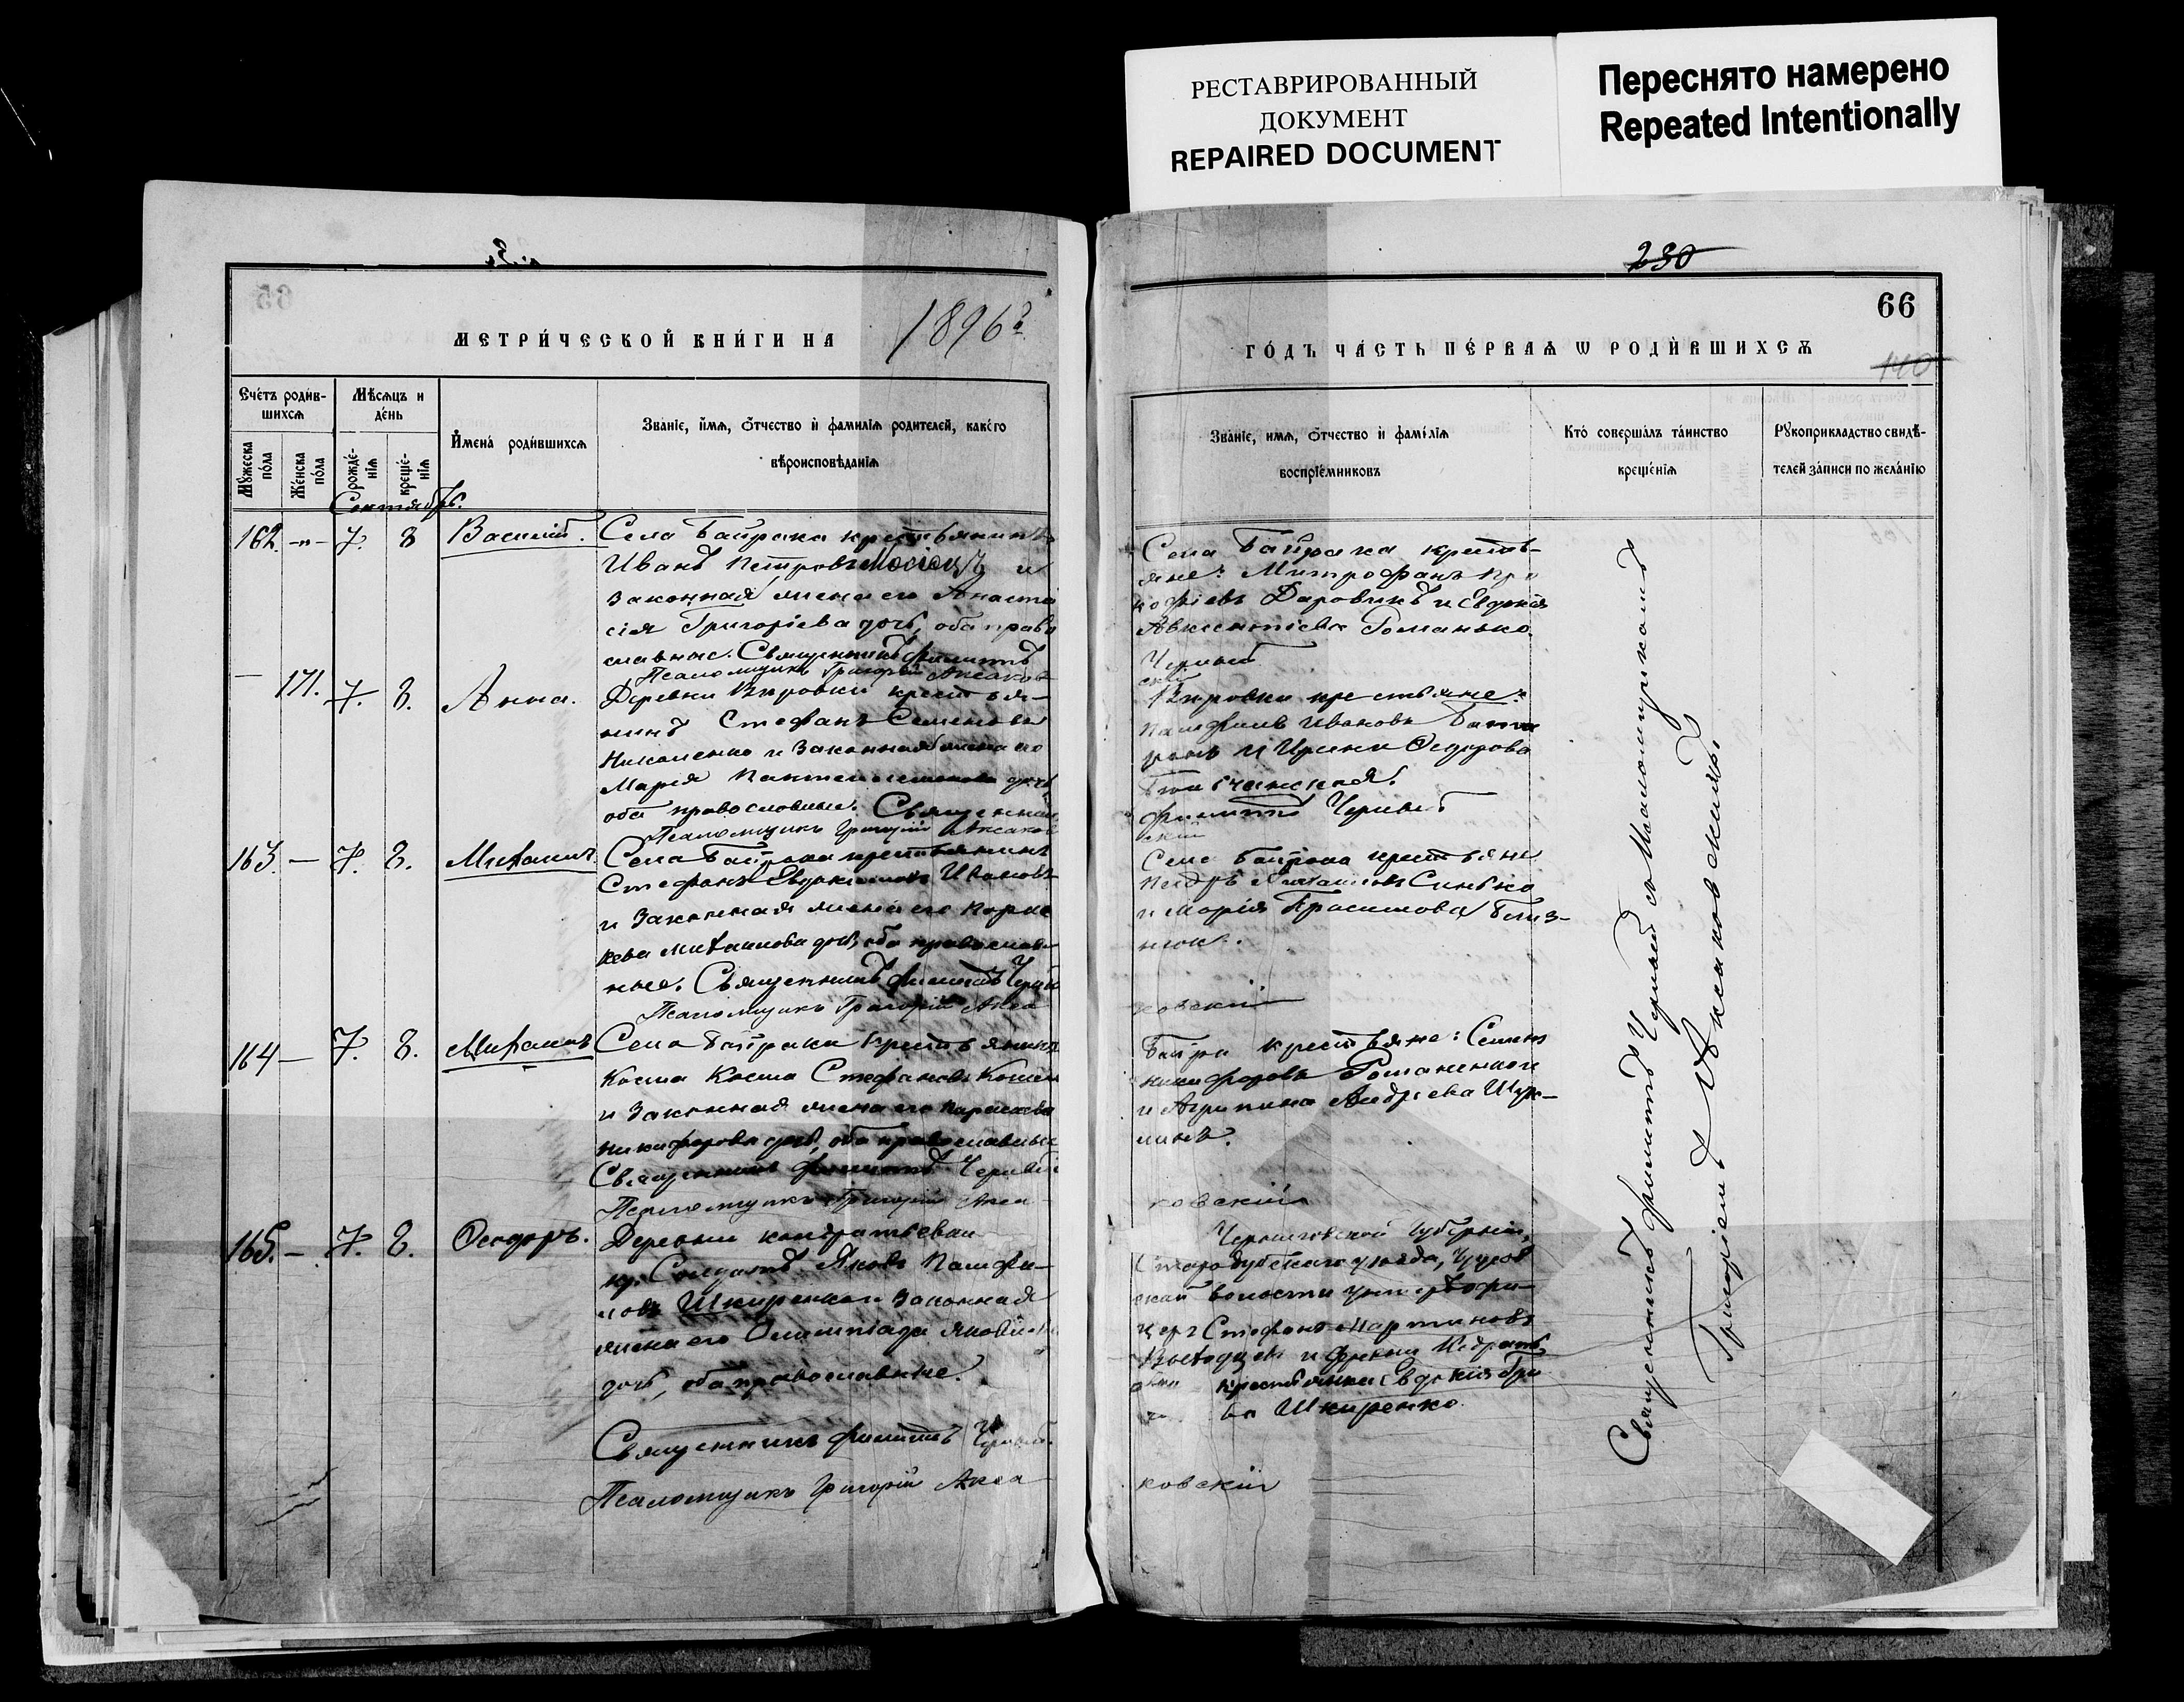 РЕСТАВРИРОВАННЫЙ
ДОКУМЕНТ
REPAIRED DOCUMENT
Переснято намерено
Repeated Intentionally
МЕТРИ́ЧЕСКОЙ КНИ́ГИ НА 1896 г.
Сче́тъ роди́в-
шихсѧ
Мѣсѧцъ и
де́нь
Мꙋ́жеска
по́ла
Же́нска
по́ла
рожде́-
нїѧ
креще́-
нїѧ
Имена́ роди́вшихсѧ
Зва́нїе, и́мѧ, ѻ́тчество и҆ фами́лїѧ роди́телей, како́го
вѣроисповѣ́данїѧ
Сентябрь.
162. -"- 7. 8 Василій. Села Байрака крестьянинъ
Иванъ Петровъ Мосіецъ и
законная жена его Анаста
сія Григоріева дочь, оба право
славные. Священникъ Филиппъ
Псаломщикъ Григорій Аксаков
— 171. 7. 8. Анна. Деревни Вировки крестья-
нинъ Стефанъ Семеновъ
Николенко и законная жена его
Марія Пантелеимонова дочь
оба православные. Священник
Псаломщикъ Григорій Аксаков
163. — 7. 8. Михаилъ Села Байрака крестьянинъ
Стефанъ Евдокимовъ Ивановъ
и законная жена его Парас
кева Михаилова дочь, оба православ
ные. Священникъ Филиппъ Черны
Псаломщикъ Григорій Акса
164 — 7. 8. Михаилъ Села Байрака крестьянинъ
Косма Косма Стефановъ
и законная жена его Параскева
Никифорова дочь, оба православные
Священникъ Филиппъ Черный
Псаломщикъ Григорій Акса
165. — 7. 8. Ѳеодоръ. Деревни Кондратьевки
Солдатъ Яковъ Памфи-
ловъ Шкиренко и законная
жена его Олимпіада Яковлева
дочь, оба православные.
Священникъ Филиппъ Черный
Псаломщикъ Григорій Акса
230
66
140
ГО́ДЪ ЧА́СТЬ ПЕ́РВАѦ Ѡ РОДИ́ВШИХСѦ
Зва́нїе, и́мѧ, ѻ́тчество и҆ фами́лїѧ
воспрїе́мниковъ
Кто̀ соверша́лъ та́инство
креще́нїѧ
Рꙋкоприкла́дство свидѣ́-
телей за́писи по жела́нїю
Села Байрака кресть-
яне: Митрофанъ Про
кофіевъ Даровикъ и Евдокія
Авксентіева Романько.
Черный
скій
Вировки крестьяне:
Памфилъ Ивановъ
и Ирина Ѳедорова
Филиппъ Черный
скій
Села Байрака крестьяне
Петръ Михаиловъ Синько
и Марія Герасимова Близ-
нюк.
ковскій
Байра крестьяне: Семенъ
Никифоровъ Романенко
и Агрипина Андреева Шуж-
линъ.
ковскій
Черниговской губерніи,
Стародубскаго уѣзда,
ской волости унтеръ-офи-
церъ Стефанъ Мартиновъ
крестьянка Евдокія Гри
ва Шкиренко.
ковскій
Священникъ Филиппъ Черный съ Псаломщикомъ
Григоріемъ Аксаковскимъ.